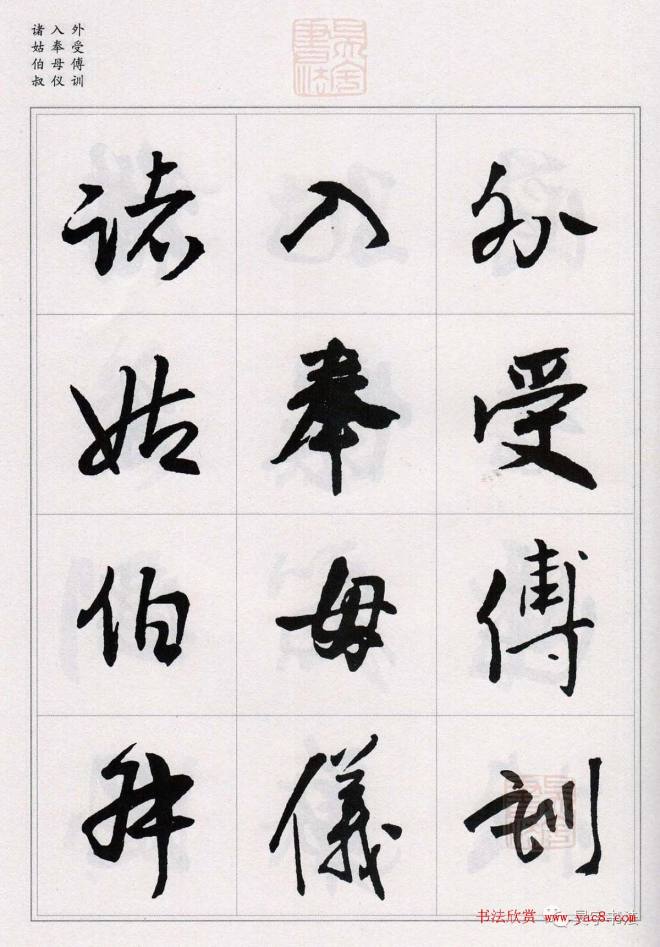 外受傅训
入奉母仪
诸姑伯叔
外受傅訓
入奉母儀
諸姑伯叔
书法欣赏 www.yac8.com